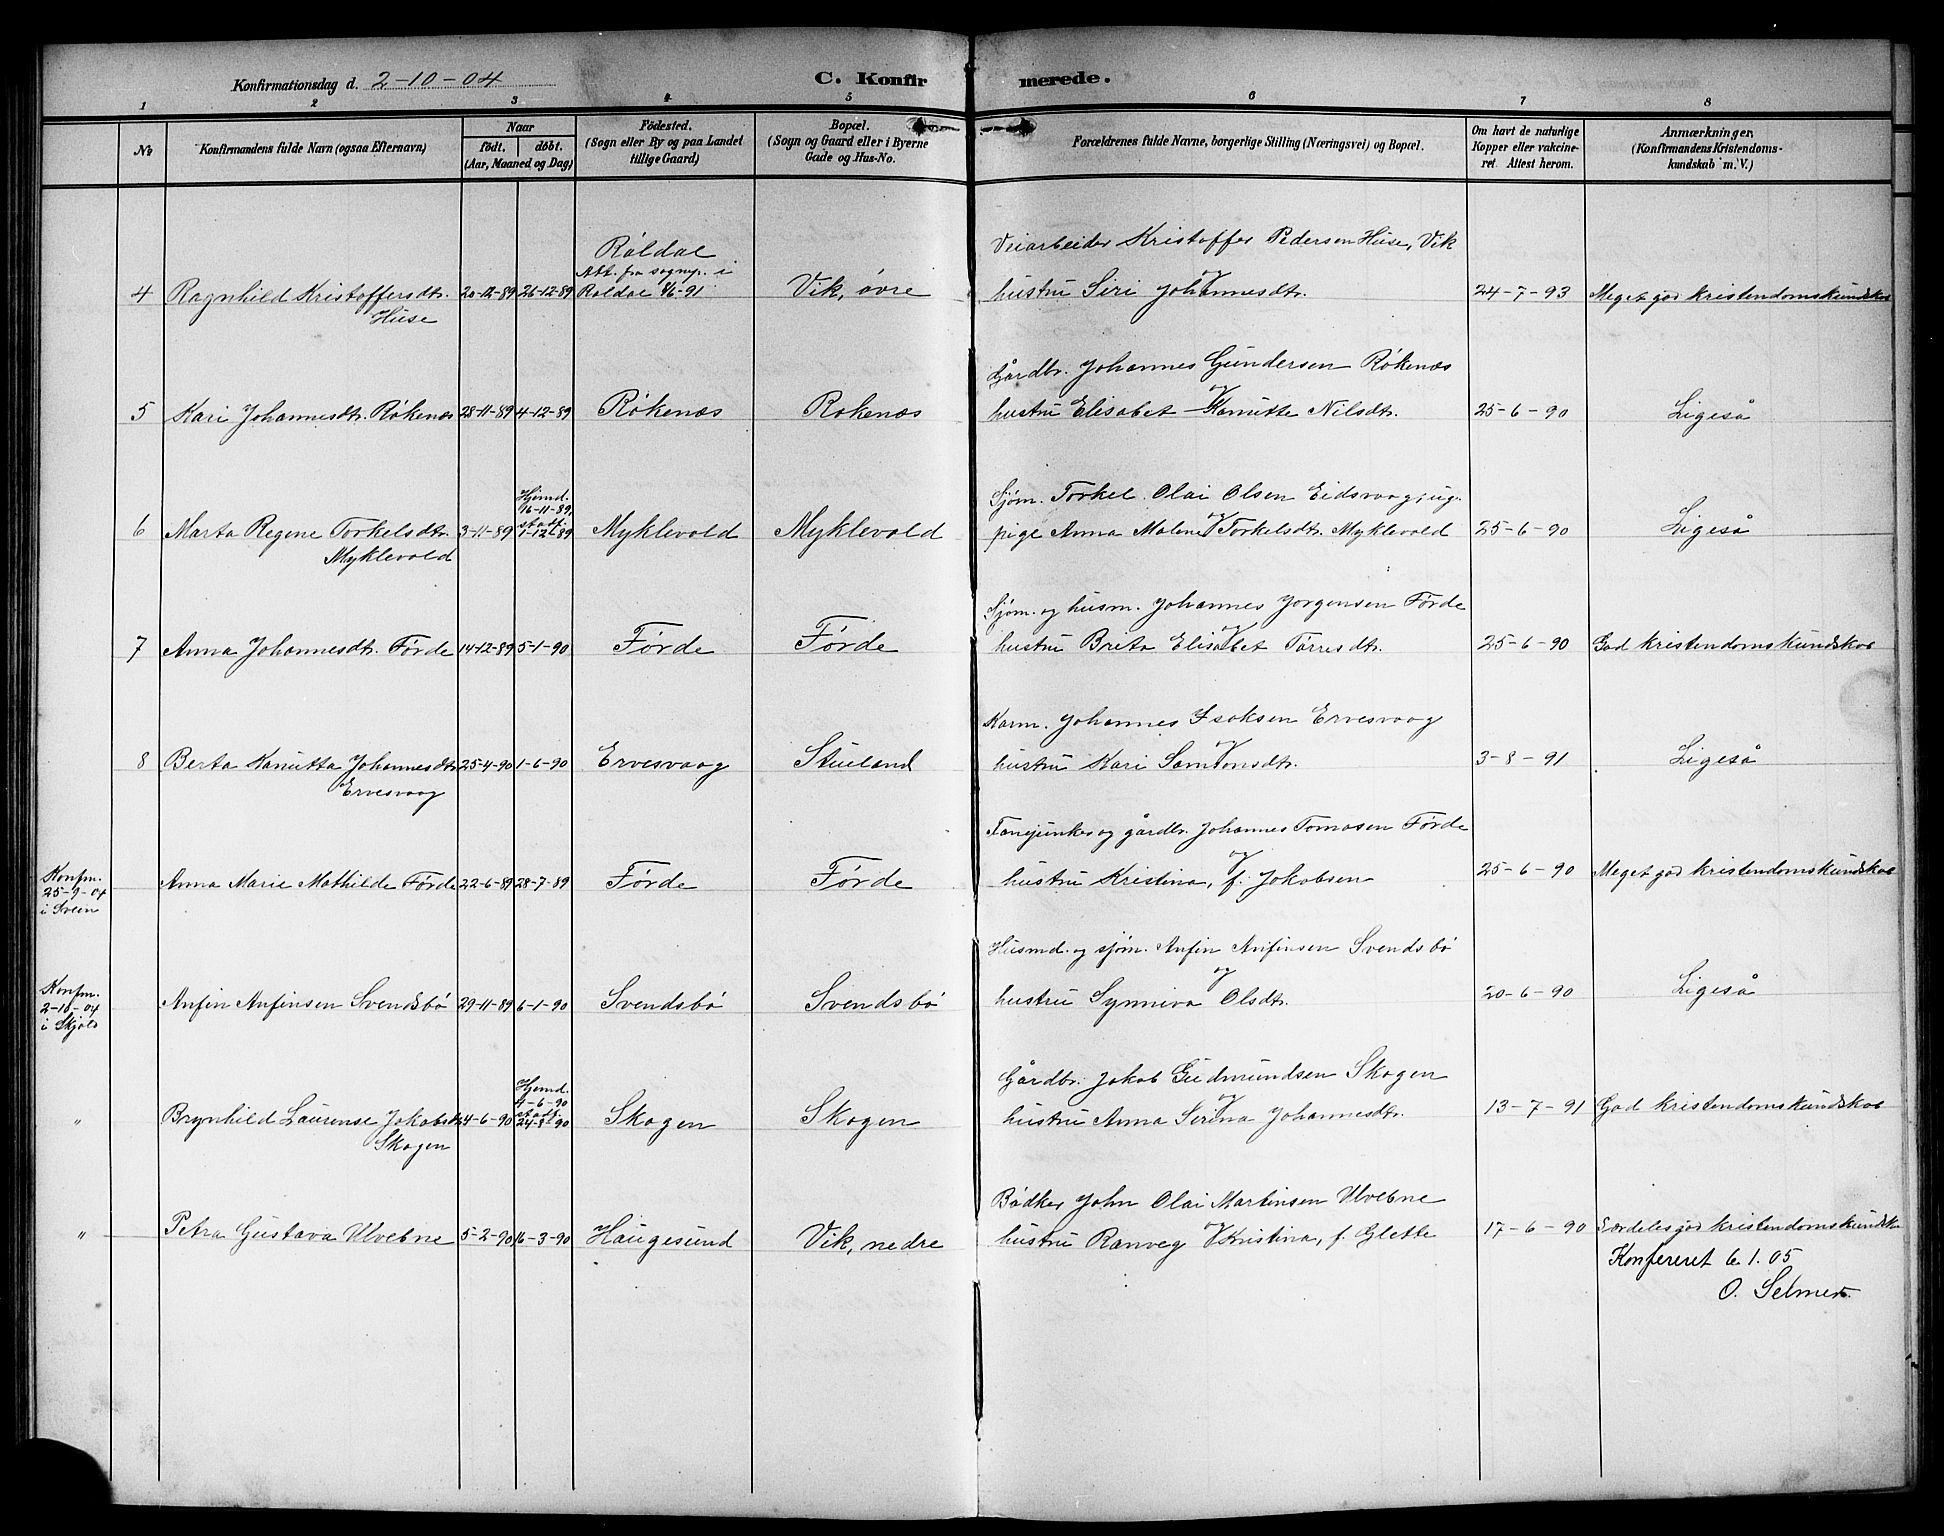 Konfirmationsdag d. 2-10-04
C. Konfirmerede.
1 2 3 4 5 6 7 8
No
Konfirmandens fulde Navn (ogsaa Efternavn)
Naar
født. døbt.
(Aar, Maaned og Dag)
Fødested.
(Sogn eller By og paa Landet
tillige Gaard)
Bopæl.
(Sogn og Gaard eller i Byerne
Gade og Hus-No.
Forældrenes fulde Navne, borgerlige Stilling (Næringsvei) og Bopæl.
Om havt de naturlige
Kopper eller vakcine-
ret. Attest herom.
Anmærkninger,
(Konfirmandens Kristendoms-
kundskab m. V.)
Røldal
Att. fra sognep. i
4 Ragnhild Kristoffersdtr. 20-12-89 26-12-89 Røldal 6/6-91 Vik, øvre
Huse
Veiarbeider Kristoffer Pedersen Huse, Vik
og
hustru Siri Johannesdtr. 24-7-93 Meget god kristendomskundskab
5 Kari Johannesdtr. Røkenæs 28-11-89 4-12-89 Røkenæs Røkenæs
Gårdbr. Johannes Gundersen Røkenæs
og
hustru Elisabet Kanutte Nilsdtr. 25-6-90 Ligeså
Hjemd.
16-11-89,
st. atf.
6 Marta Regene Torkelsdtr. 3-11-89 1-12-89 Myklevold Myklevold
Myklevold
Sjøm. Torkel Olai Olsen Eidsvaag, ug.
og
pige Anna Malene Torkelsdtr. Myklevold 25-6-90 Ligeså
7 Anna Johannesdtr. Førde 14-12-89 5-1-90 Førde Førde
Sjøm. og husm. Johannes Jørgensen Førde
og
hustru Breta Elisabet Tørresdtr. 25-6-90 God kristendomskundskab
8 Berta Kanutta Johannesdtr. 25-4-90 1-6-90 Ervesvaag Stueland
Ervesvaag
Kårm. Johannes Isaksen Ervesvaag
og
hustru Kari Samsonsdtr. 3-8-91 Ligeså
Konfm.
25-9-04
i Svein
Anna Marie Mathilde Førde 22-6-89 28-7-89 Førde Førde
og gårdbr. Johannes Tomasen Førde
og
hustru Kristina, f. Jakobsen 25-6-90 Meget god kristendomskundskab
Konfm.
2-10-04
i Skjold
Anfin Anfinsen Svendsbø 29-11-89 6-1-90 Svendsbø Svendsbø
Husmd. og sjøm. Anfin Anfinsen Svendsbø
og
hustru Synniva Olsdtr. 20-6-90 Ligeså
Hjemd.
4-6-90
st. atf.
" Brynhild Laurense Jakobsdtr. 4-6-90 24-8-90 Skogen Skogen
Skogen
Gårdbr. Jakob Gudmundsen Skogen
og
hustru Anna Serina Johannesdtr. 13-7-91 God kristendomskundskab
" Petra Gustava Ulvebne 5-2-90 16-3-90 Haugesund Vik, nedre
Bødker John Olai Martinsen Ulvebne
og
hustru Ranveg Kristina, f. Glette 17-6-90 Særdeles god kristendomskundsk.
Konfereret 6.1.05
O. Selmer.